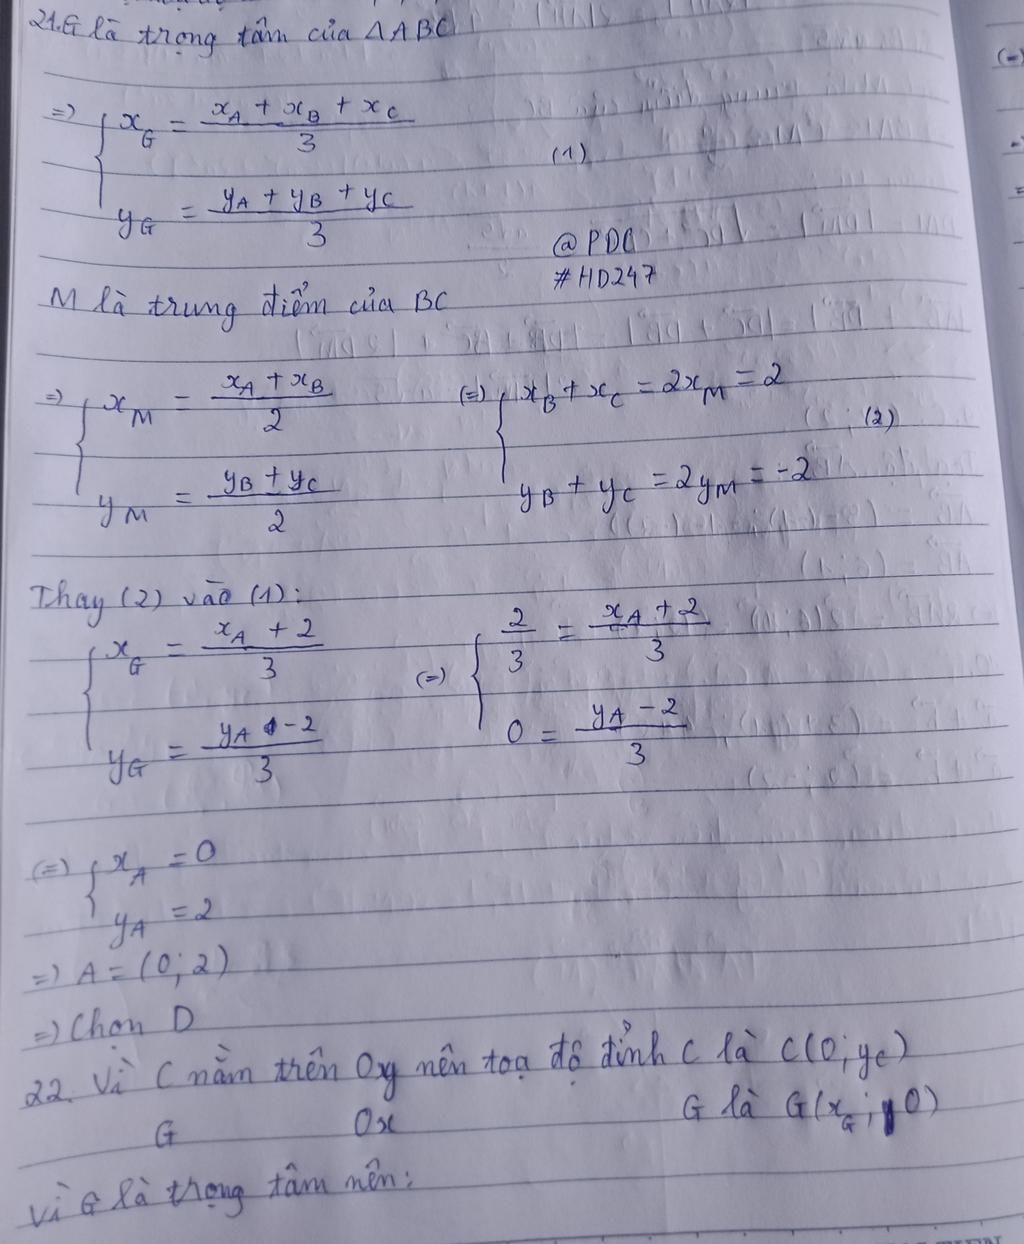 21. G là trọng tâm của ΔABC
=> { x_G = (x_A + x_B + x_C)/3
y_G = (y_A + y_B + y_C)/3 (1)
@PDC
#HD247
M là trung điểm của BC
=> { x_M = (x_A + x_B)/2 (=) { x_B + x_C = 2x_M = 2
y_M = (y_B + y_C)/2 y_B + y_C = 2y_M = -2 (2)
Thay (2) vào (1):
{ x_G = (x_A + 2)/3 (=) { 2/3 = (x_A + 2)/3
y_G = (y_A - 2)/3 0 = (y_A - 2)/3
(=) { x_A = 0
y_A = 2
=> A = (0; 2)
=> Chọn D
22. Vì C nằm trên Oy nên toạ độ đỉnh C là C(0; y_C)
G Ox G là G(x_G; 0)
Vì G là trọng tâm nên: